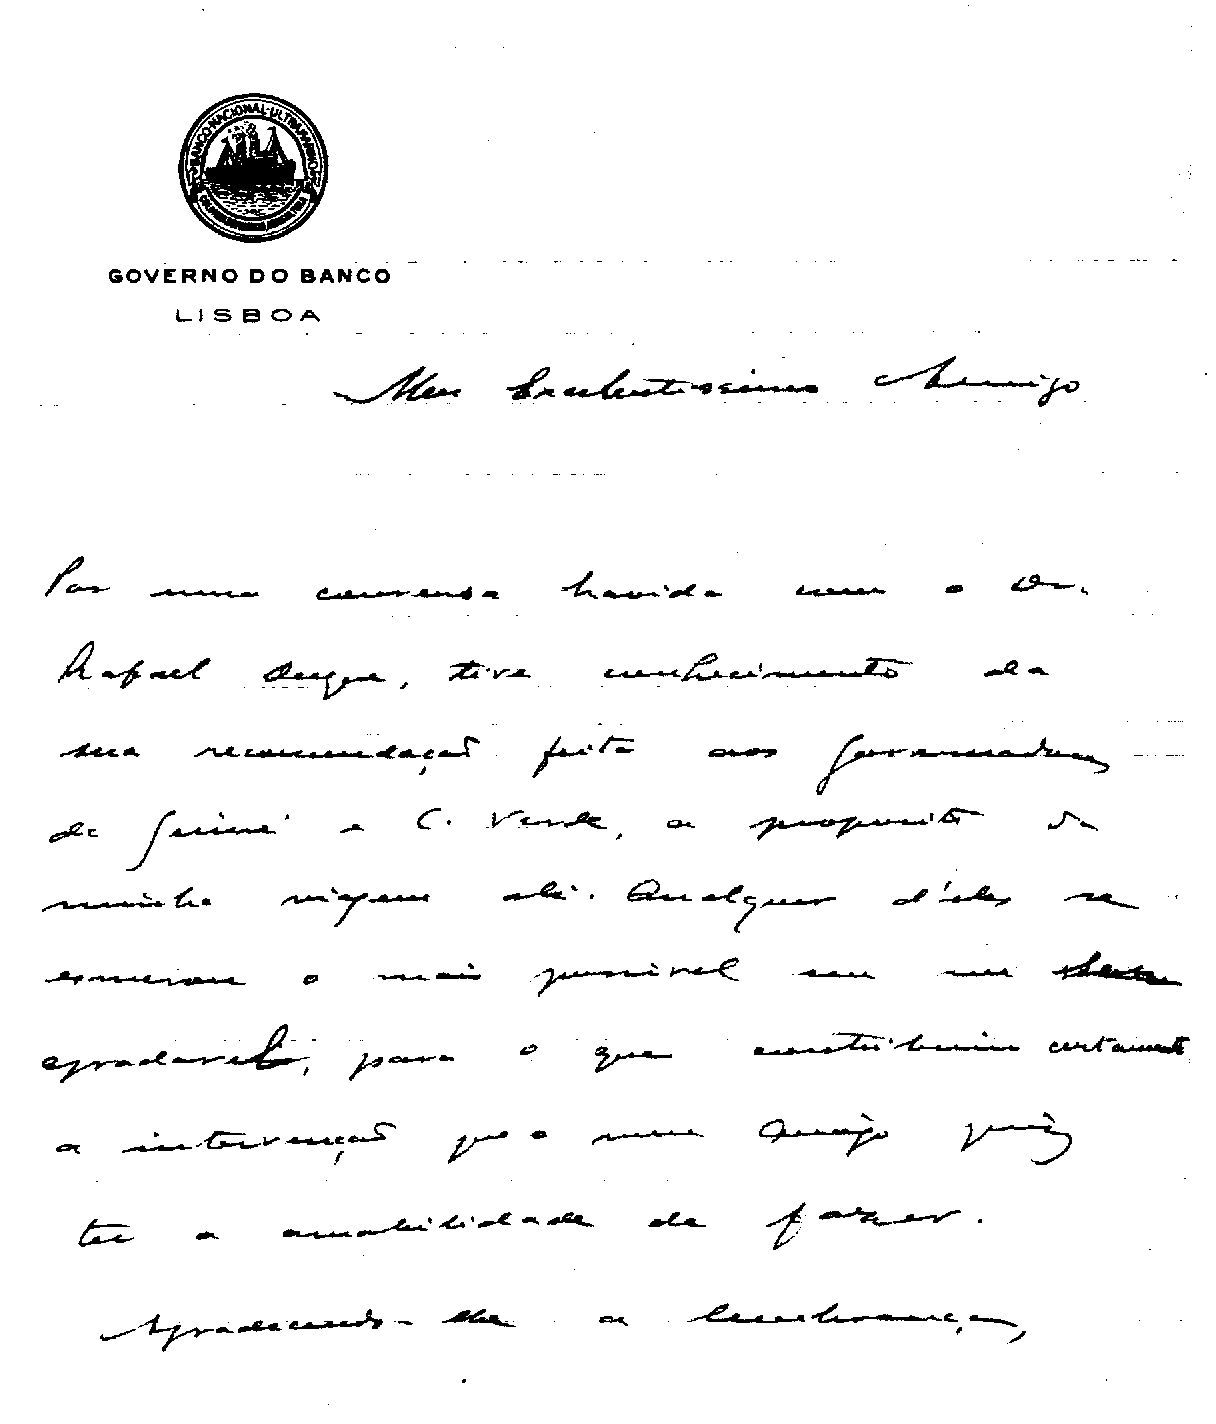 BANCO NACIONAL ULTRAMARINO
GOVERNO DO BANCO
LISBOA
Meu Excelentissimo Amigo
Por uma conversa havida com o Dr.
Rafael Duque, tive conhecimento da
sua recomendação feita aos Governadores
da Guiné e C. Verde, a proposito da
minha viagem ali. Qualquer d'eles se
esmerou o mais possivel em me
agradavel, para o que contribuiu certamente
a intervenção que o meu Amigo quiz
ter a amabilidade de fazer.
Agradecendo-lhe a lembrança,